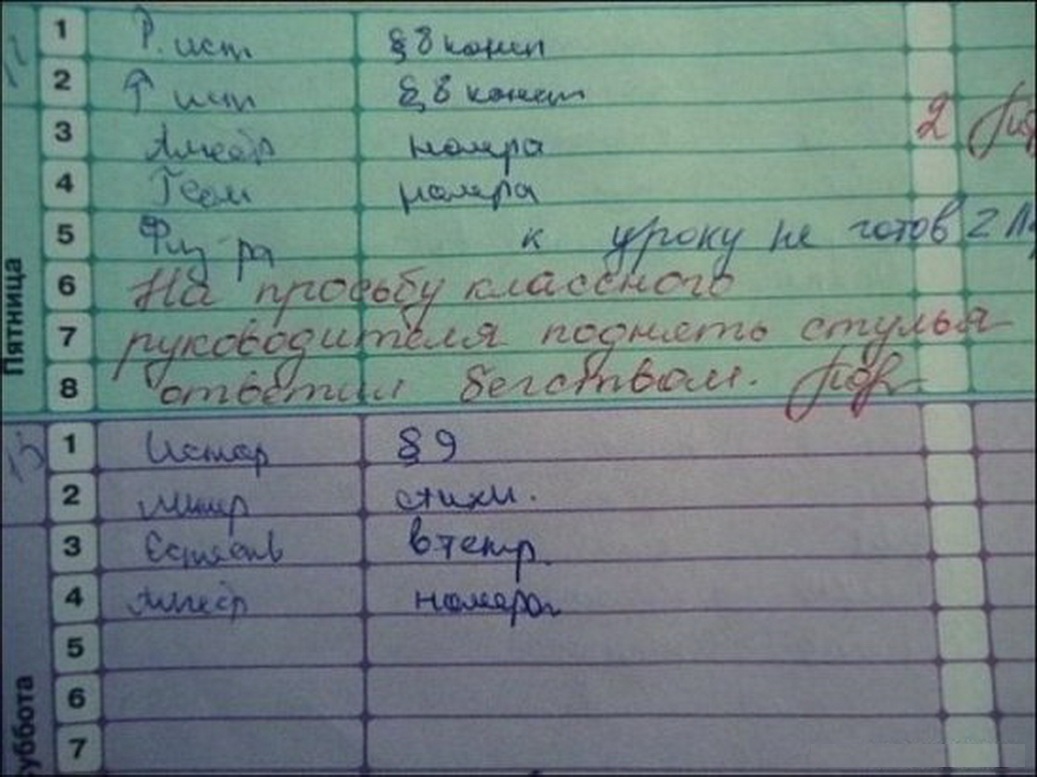 1 Р. ист §8 конsп
2 Р ист §8 консп
3 Алгебр номера 2
4 Геом номера
5 Физ-ра к уроку не готов 2
6 На просьбу классного
7 руководителя поднять стулья
8 ответил бегством.
Пятница
1 Истор §9
2 Литер стихи.
3 Естеств в тетр.
4 Алгебр номера
5
6
7
Суббота